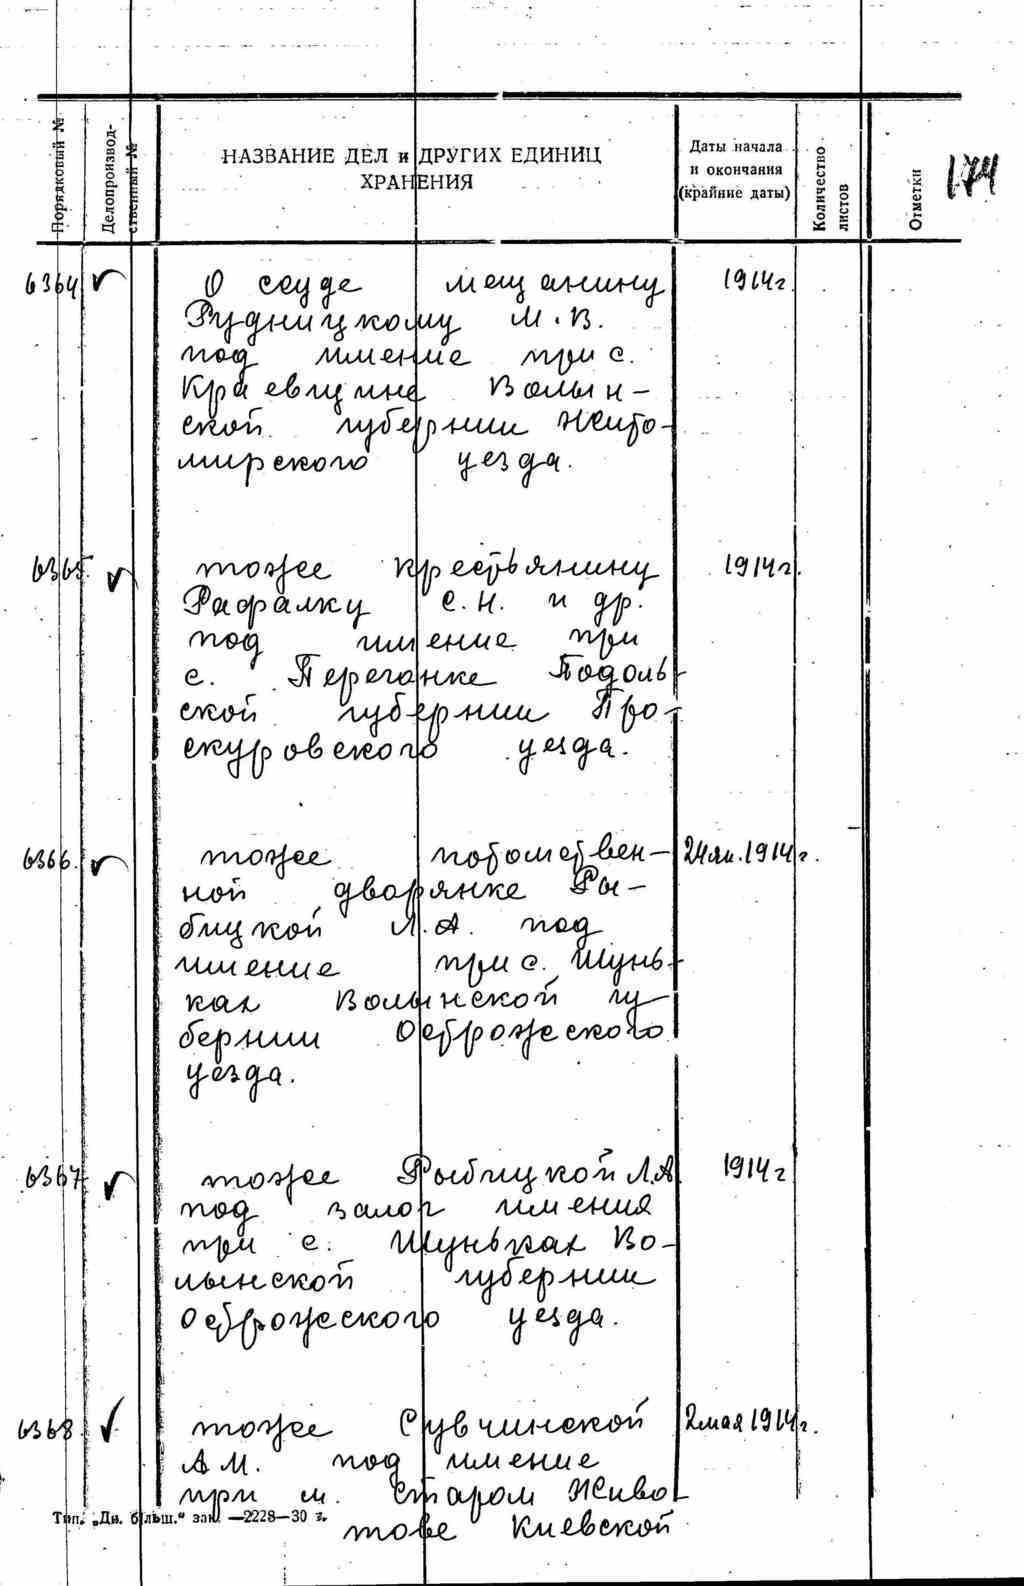 Порядковый №
Делопроизводственный №
НАЗВАНИЕ ДЕЛ и ДРУГИХ ЕДИНИЦ
ХРАНЕНИЯ
Даты начала
и окончания
(крайние даты)
Количество
листов
Отметки
174
6364 О ссуде мещанину 1914г.
Рудницкому М.В.
под имение при с.
Краевщине Волын-
ской губернии Жито-
мирского уезда.
6365. тоже крестьянину 1914г.
Рафалку С.Н. и др.
под имение при
с. Переганке Подоль-
ской губернии Про-
скуровского уезда.
6366. тоже потомствен- 24 ян. 1914г.
ной дворянке Ры-
бицкой Л.А. под
имение при с. Шунь-
ках Волынской гу-
бернии Острожеского
уезда.
6367 тоже Рыбицкой Л.А. 1914г
под залог имения
при с. Шуньках Во-
лынской губернии
Острожеского уезда.
6368 тоже Сувчинской 2 мая 1914г.
А.М. под имение
при м. Старом Живо-
Тип. „Дн. більш.“ зак. —2228—30 г.
тове Киевской